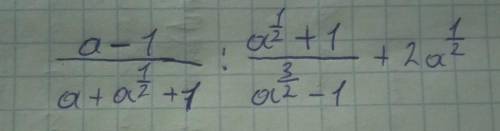 \frac{a-1}{a+a^{\frac{1}{2}}+1} : \frac{a^{\frac{1}{2}}+1}{a^{\frac{3}{2}}-1} + 2a^{\frac{1}{2}}